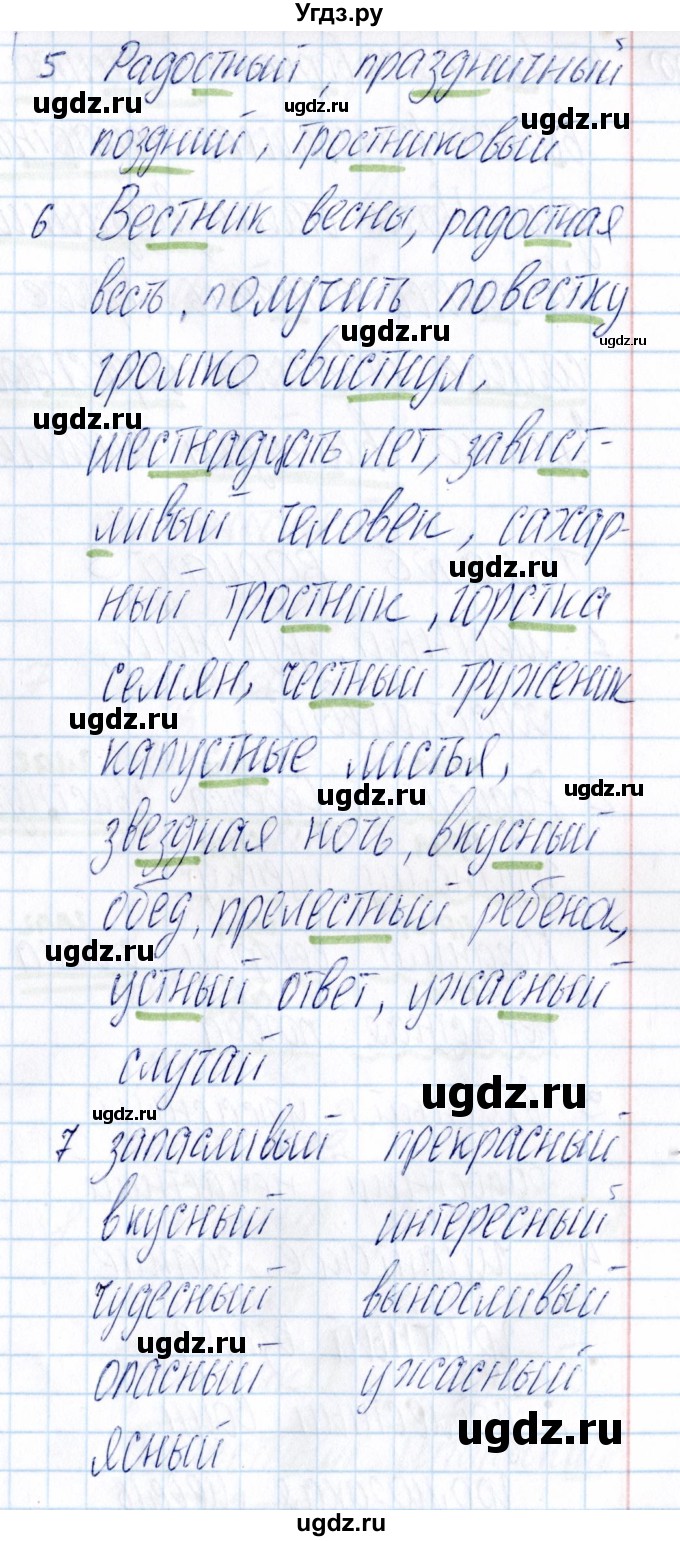 Угдз.ру
5 Радостный, праздничный
ugdz.ru ugdz.ru ugdz.ru
поздний, тростниковый
6 Вестник весны, радостная
весть, получить повестку
ugdz.ru ugdz.ru
громко свистнул,
ugdz.ru
шестнадцать лет, завист-
ливый человек, сахар-
ugdz.ru
ный тростник, горстка
семян, честный труженик
ugdz.ru
капустные листья,
ugdz.ru ugdz.ru
звездная ночь, вкусный
обед, прелестный ребенок,
ugdz.ru
устный ответ, ужасный
случай
ugdz.ru
ugdz.ru
7 запасливый прекрасный
вкусный интересный
чудесный выносливый
ugdz.ru
опасный ужасный
ugdz.ru
ясный
ugdz.ru